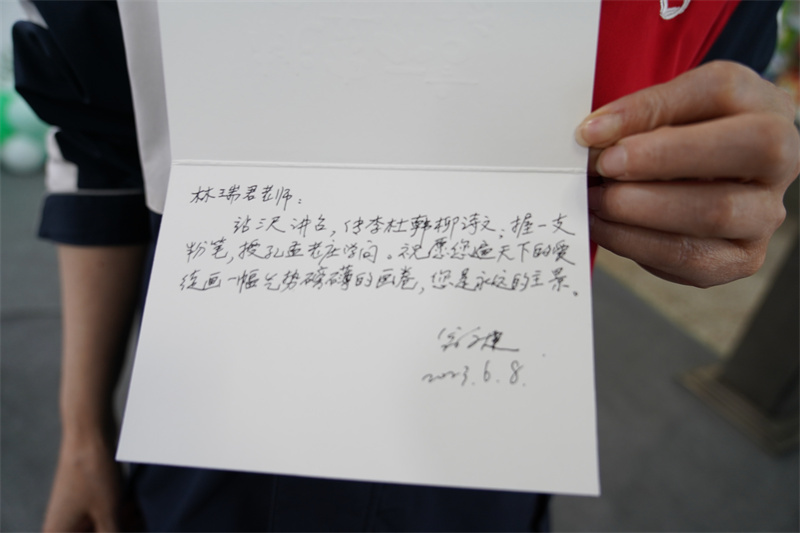 林瑞君老师：
站三尺讲台，传李杜韩柳诗文；握一支
粉笔，授孔孟老庄学问。祝愿您遍天下的爱
绘画一幅气势磅礴的画卷，您是永远的主景。
2023.6.8.